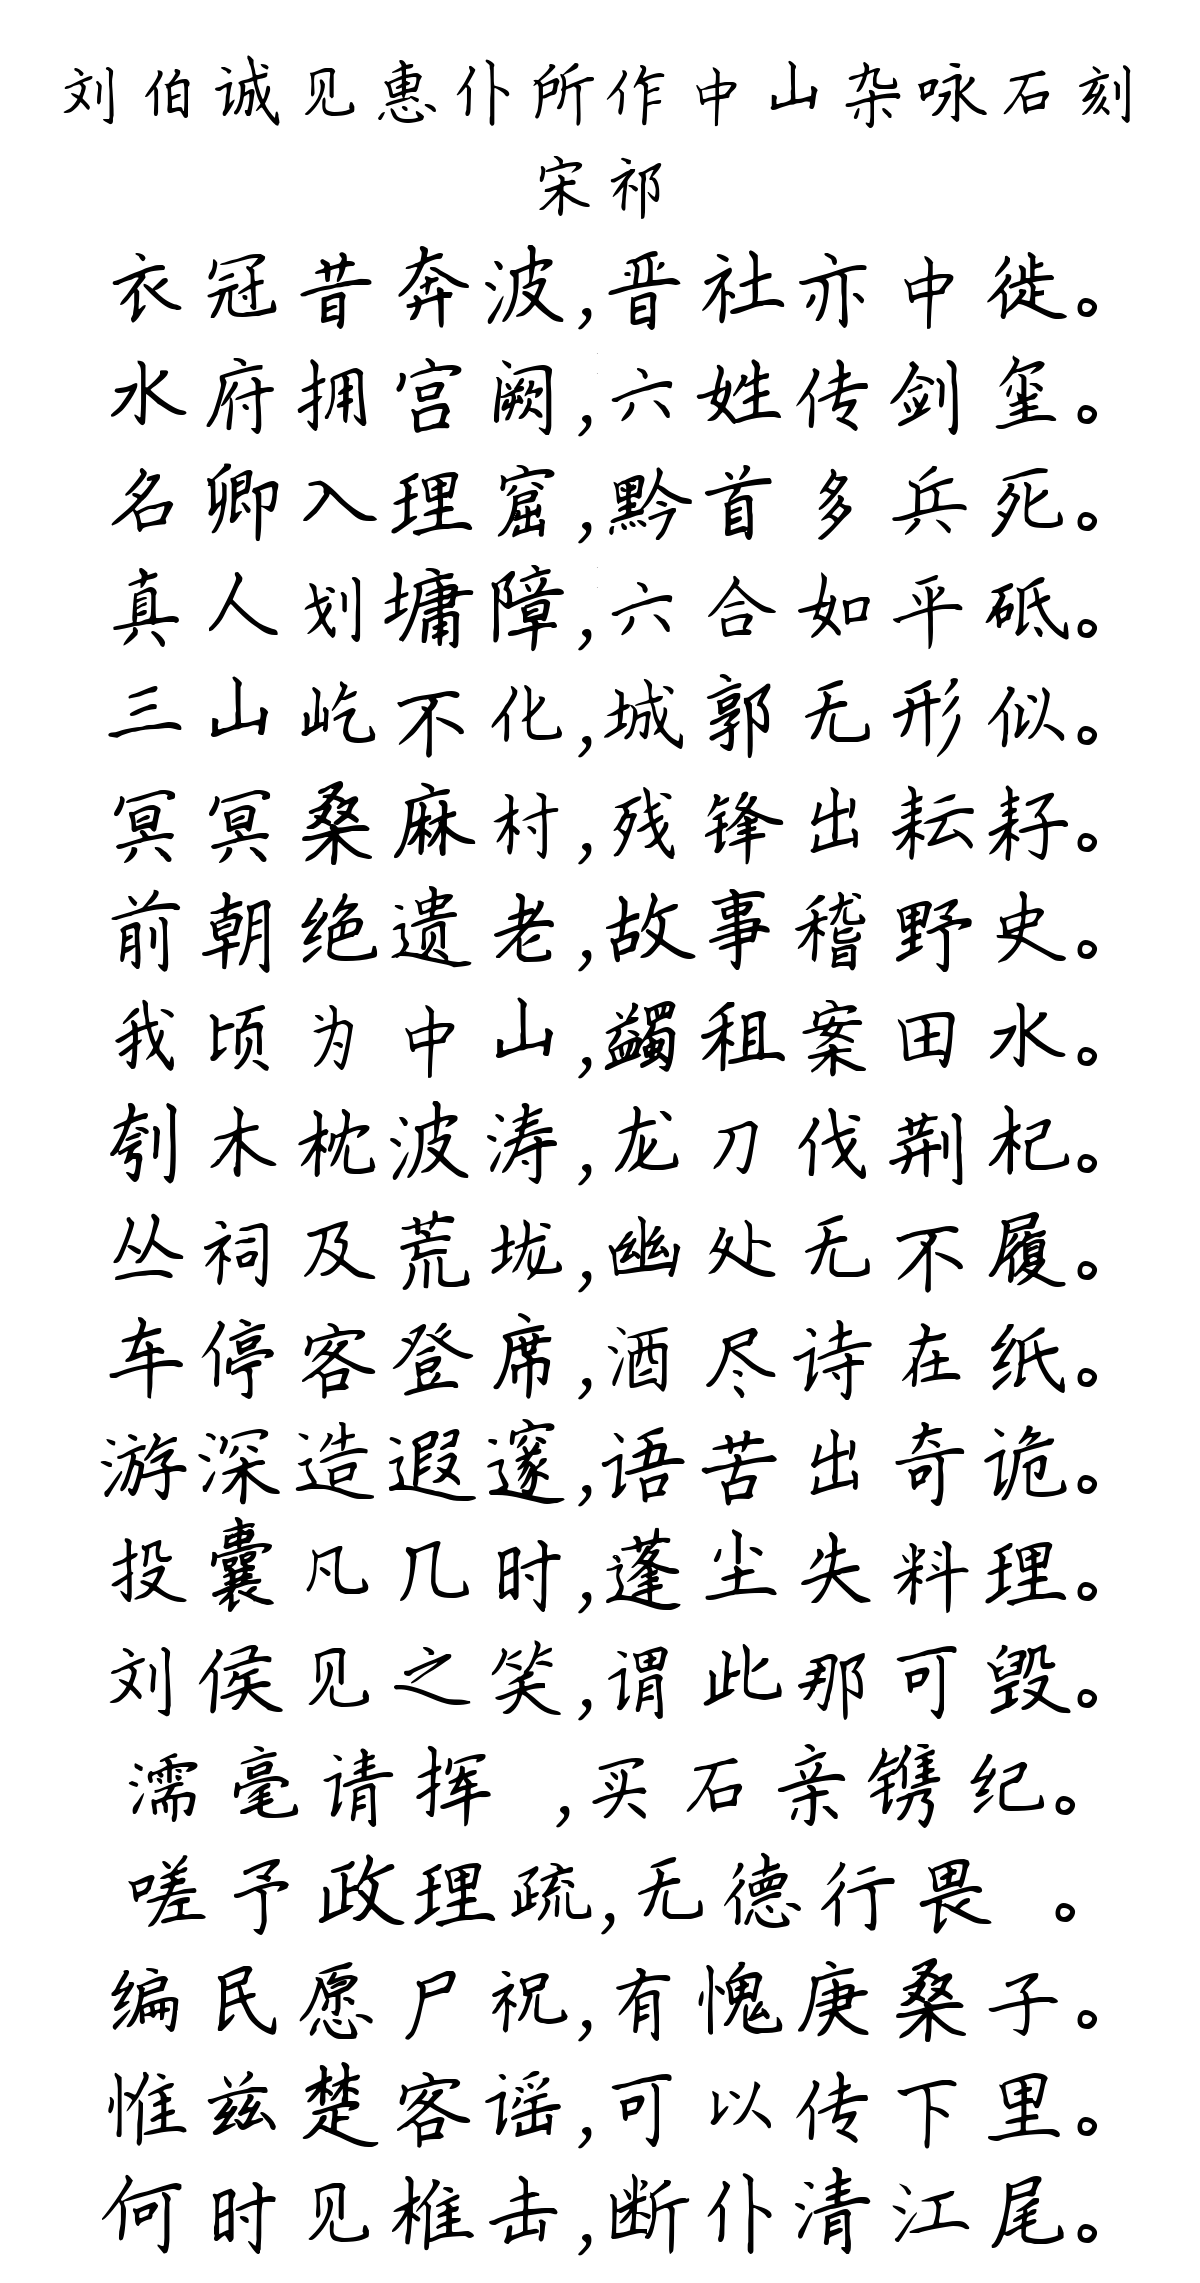 刘伯诚见惠仆所作中山杂咏石刻
宋祁
衣冠昔奔波,晋社亦中徙。
水府拥宫阙,六姓传剑玺。
名卿入理窟,黔首多兵死。
真人划墉障,六合如平砥。
三山屹不化,城郭无形似。
冥冥桑麻村,残锋出耘耔。
前朝绝遗老,故事稽野史。
我顷为中山,蠲租案田水。
刳木枕波涛,龙刀伐荆杞。
丛祠及荒垅,幽处无不履。
车停客登席,酒尽诗在纸。
游深造遐邃,语苦出奇诡。
投囊凡几时,蓬尘失料理。
刘侯见之笑,谓此那可毁。
濡毫请挥 ,买石亲镌纪。
嗟予政理疏,无德行畏 。
编民愿尸祝,有愧庚桑子。
惟兹楚客谣,可以传下里。
何时见椎击,断仆清江尾。